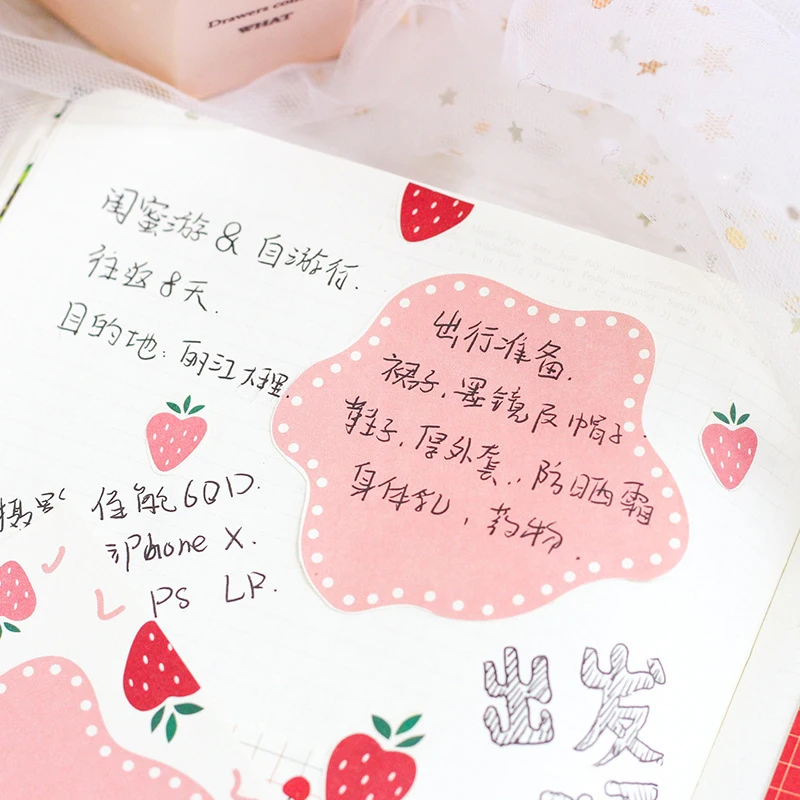 Drawers
WHAT
闺蜜游 & 自游行.
往返 8天.
目的地：丽江大理.
出行准备.
裙子,墨镜及帽子.
鞋子,厚外套,.防晒霜
身体乳,药物.
佳能60D.
iPhone X.
PS LR.
出发